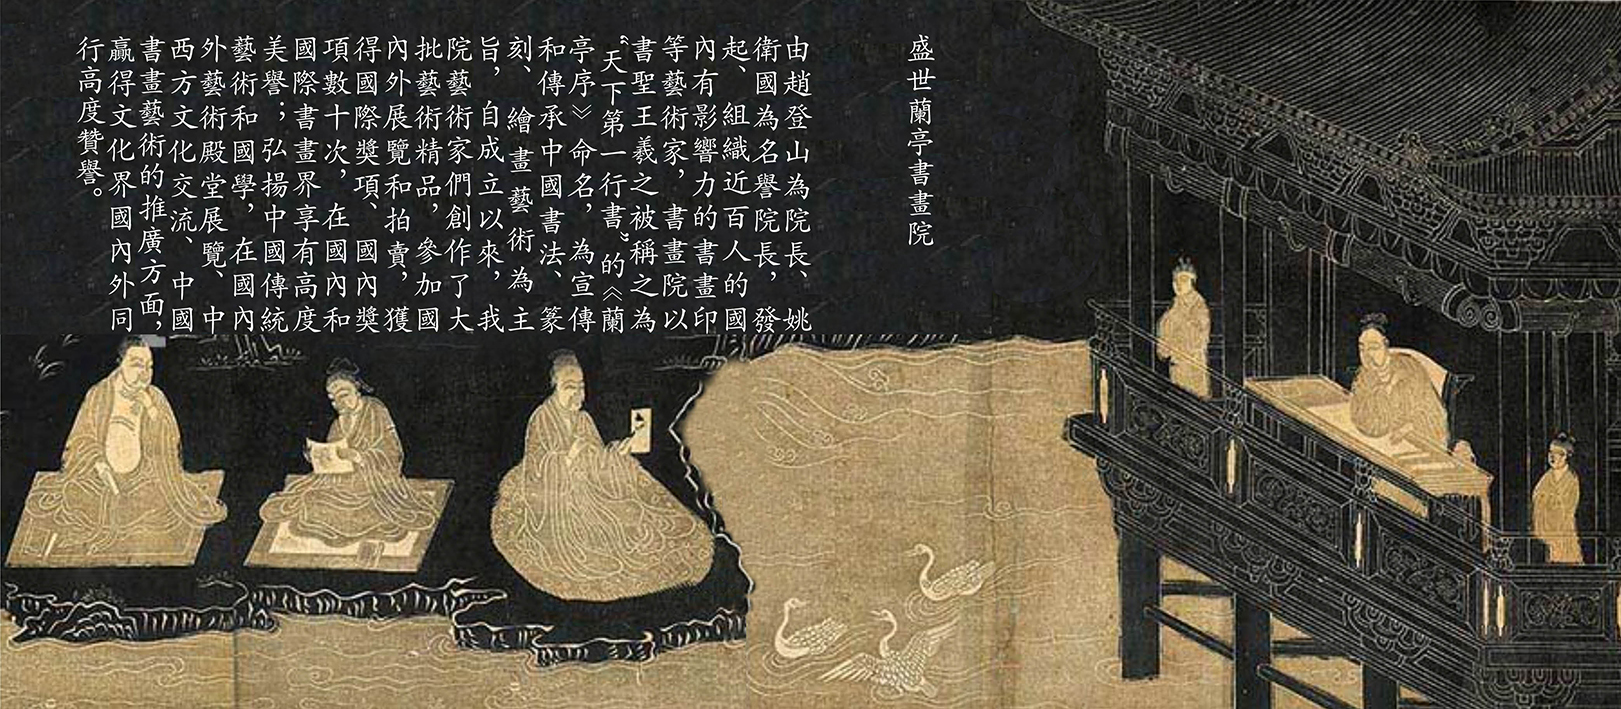 盛世蘭亭書畫院
由趙登山為院長、姚
衛國為名譽院長，發
起、組織近百人的國
內有影響力的書畫印
等藝術家，書畫院以
書聖王羲之被稱之為
“天下第一行書”的《蘭
亭序》命名，為宣傳
和傳承中國書法、篆
刻、繪畫藝術為主
旨，自成立以來，我
院藝術家們創作了大
批藝術精品，參加國
內外展覽和拍賣，獲
得國際獎項、國內獎
項數十次，在國內和
國際書畫界享有高度
美譽；弘揚中國傳統
藝術和國學，在國內
外藝術殿堂展覽、中
西方文化交流、中國
書畫藝術的推廣方面，
贏得文化界國內外同
行高度贊譽。